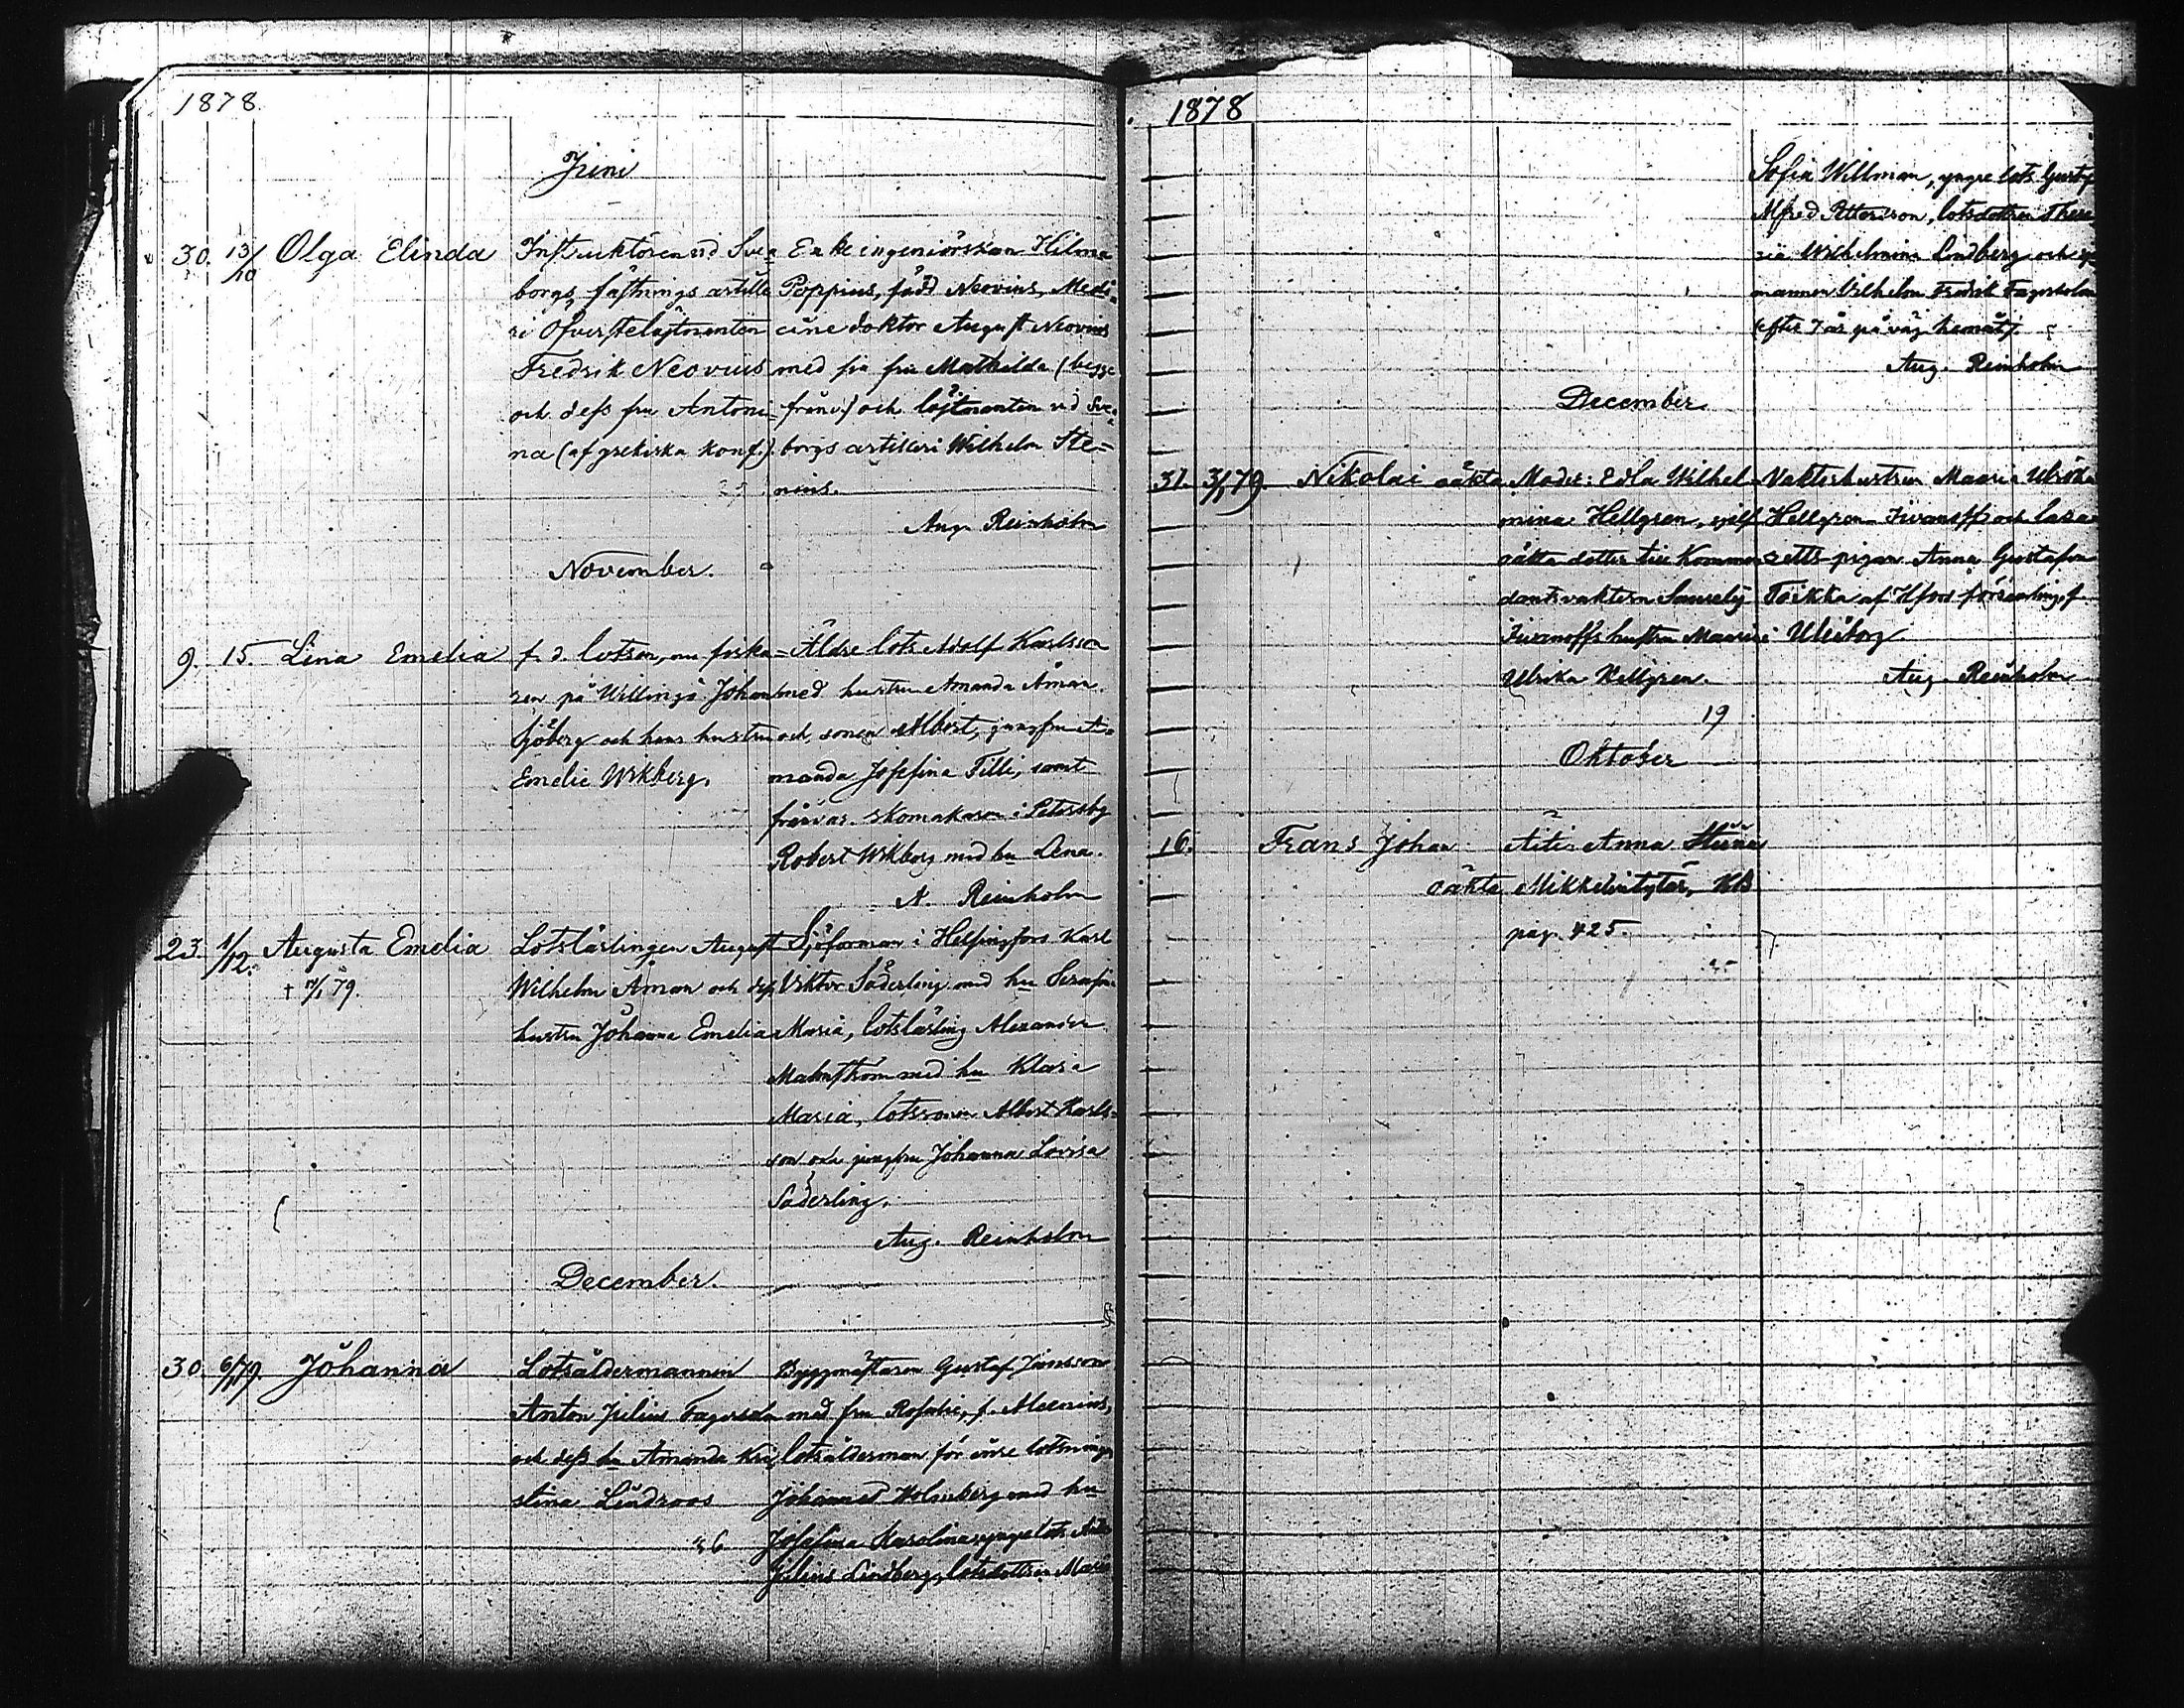 1878
Juni
30. 13/10 Olga Elinda
Instruktören vid Svea
borgs fästnings artille
ri Öfverstelöjtnanten
Fredrik Neovius
och dess fru Antoni
na (af grekiska konf.).
Enke ingeniörskan Hilma
Poppius, född Neovius, Medi
cine doktor August Neovius
med fru Mathilda (begge
frånv.) och löjtnanten vid Svea
borgs artilleri Wilhelm Ste=
nius.
Aug. Reinholm
November.
9. 15. Lina Emelia
f. d. lotsen, nu fiska=
ren på Willingö Johan
Sjöberg och hans hustru
Emelie Wikberg.
Äldre lots Adolf Karlsson
med hustru Amanda Åman
och sonen Albert, jungfru A=
manda Josefina Tilli, samt
frånvar. skomakaren i Petersbg
Robert Wikberg med hu Lena.
A. Reinholm
23. 1/12. Augusta Emelia
+ /1 79.
Lotslärlingen August
Wilhelm Åman och dess
hustru Johanna Emelia
Sjöforman i Helsingfors Karl
Viktor Söderling med hu Serafi
Maria, lotslärling Alexander
Malmström med hu Klara
Maria, lotssonen Albert Karls=
son och jungfru Johanna Lovisa
Söderling.
Aug. Reinholm
December.
30. 6/1 79. Johanna
Lotsåldermannen
Anton Julius Fagerholm
och dess hu Amanda Kri
stina Lindroos
26
Byggmästaren Gustaf Jansson
med fru Rosalie, f. Alcenius,
lotsålderman för inre lotsning
Johannes Holmberg med hu
Josefina Karolina, yngre lots
Julius Lindberg, lotsdottren Maria
1878
Sofia Willman, yngre lots Gustaf
Alfred Pettersson, lotsdottren There
sia Wilhelmina Lindberg och
mannen Wilhelm Fredrik Fagerholm
(efter 7 år på väg hemåt).
Aug. Reinholm
December.
31. 3/1 79. Nikolai oäkta
Moder: Edla Wilhel
mina Hellgren, sjelf
oäkta dotter till Kommen
dantsvaktern
Iwanoffs hustru Maria
Ulrika Hellgren.
19
Vaktershustrun Maria Ulrika
Hellgren-Iwanoff och lasa
retts-pigan Anna Gustafva
Toikka af Hfors församling, f
i Uleåborg.
Aug. Reinholm
Oktober
16. Frans Johan
oäkta
Äiti Anna Stiina
Mikkelintytär, KB
pag. 425.